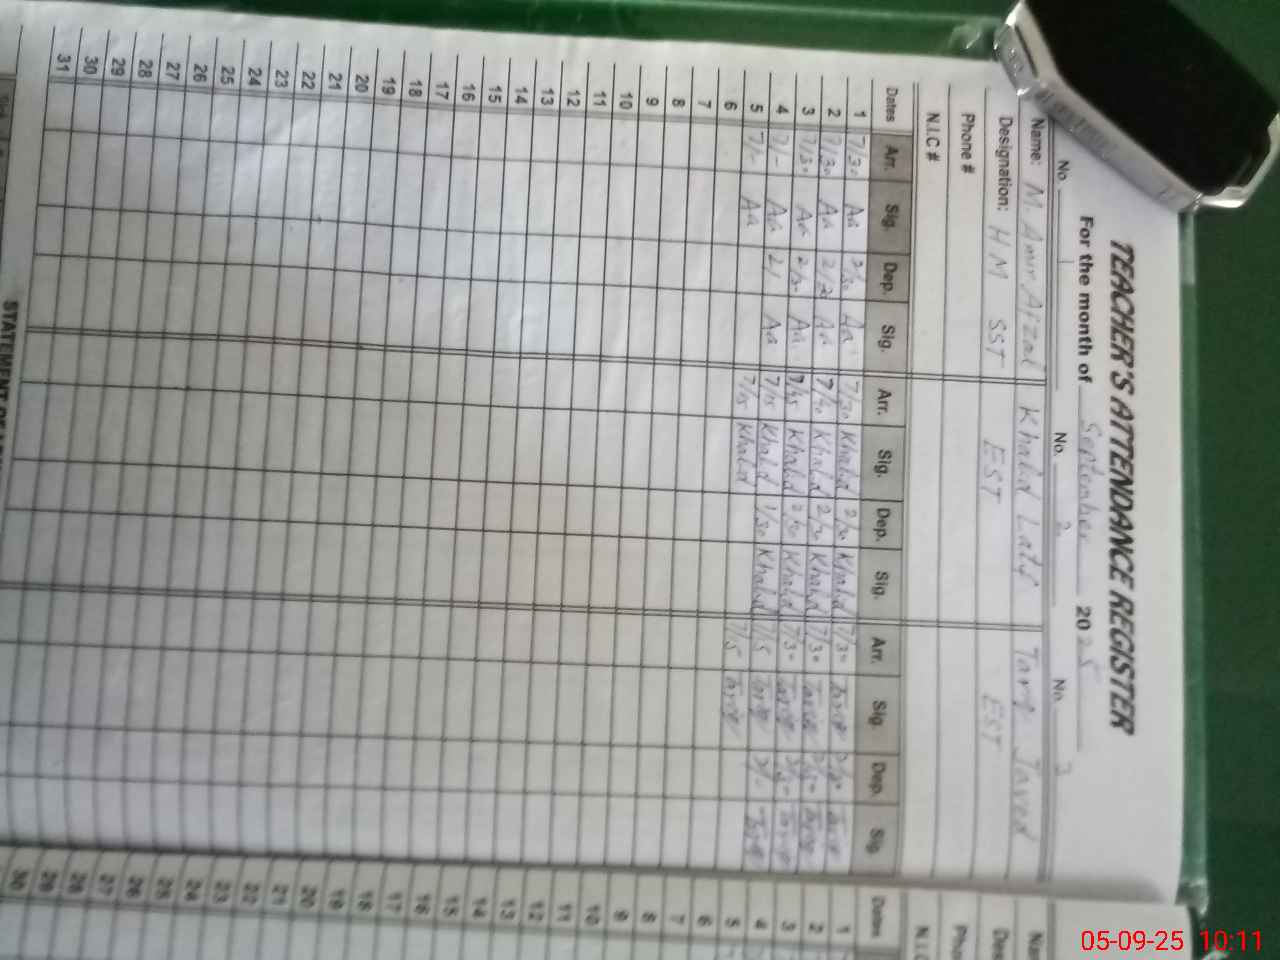 TEACHER'S ATTENDANCE REGISTER
For the month of September 2025
No. 1 No. 2 No. 3
Name: M. Amir Afzal Khalid Latif Tariq Javed
Designation: HM SST EST EST
Phone #
N.I.C #
Dates Arr. Sig. Dep. Sig. Arr. Sig. Dep. Sig. Arr. Sig. Dep. Sig.
1 7/30 Aa 2/30 Aa 7/30 Khalid 2/30 Khalid 7/30 Tariq 2/30 Tariq
2 7/30 Aa 2/30 Aa Khalid 2/30 Khalid 7/30 Tariq 2/30 Tariq
3 7/30 Aa 2/30 Aa Khalid 2/30 Khalid 7/30 Tariq Tariq
4 7/- Aa 2/ Aa 7/15 Khalid 1/30 Khalid 7/15 Tariq Tariq
5 7/- Aa 7/15 Khalid 7/15 Tariq
6
7
8
9
10
11
12
13
14
15
16
17
18
19
20
21
22
23
24
25
26
27
28
29
30
31
STATEMENT OF
Dates
1
2
3
4
5
6
7
8
9
10
11
12
13
14
15
16
17
18
19
20
21
22
23
24
25
26
27
28
29
30
05-09-25 10:11